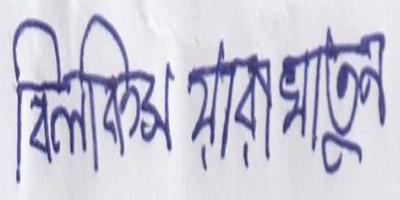 বিলকিস যারা খাতুন